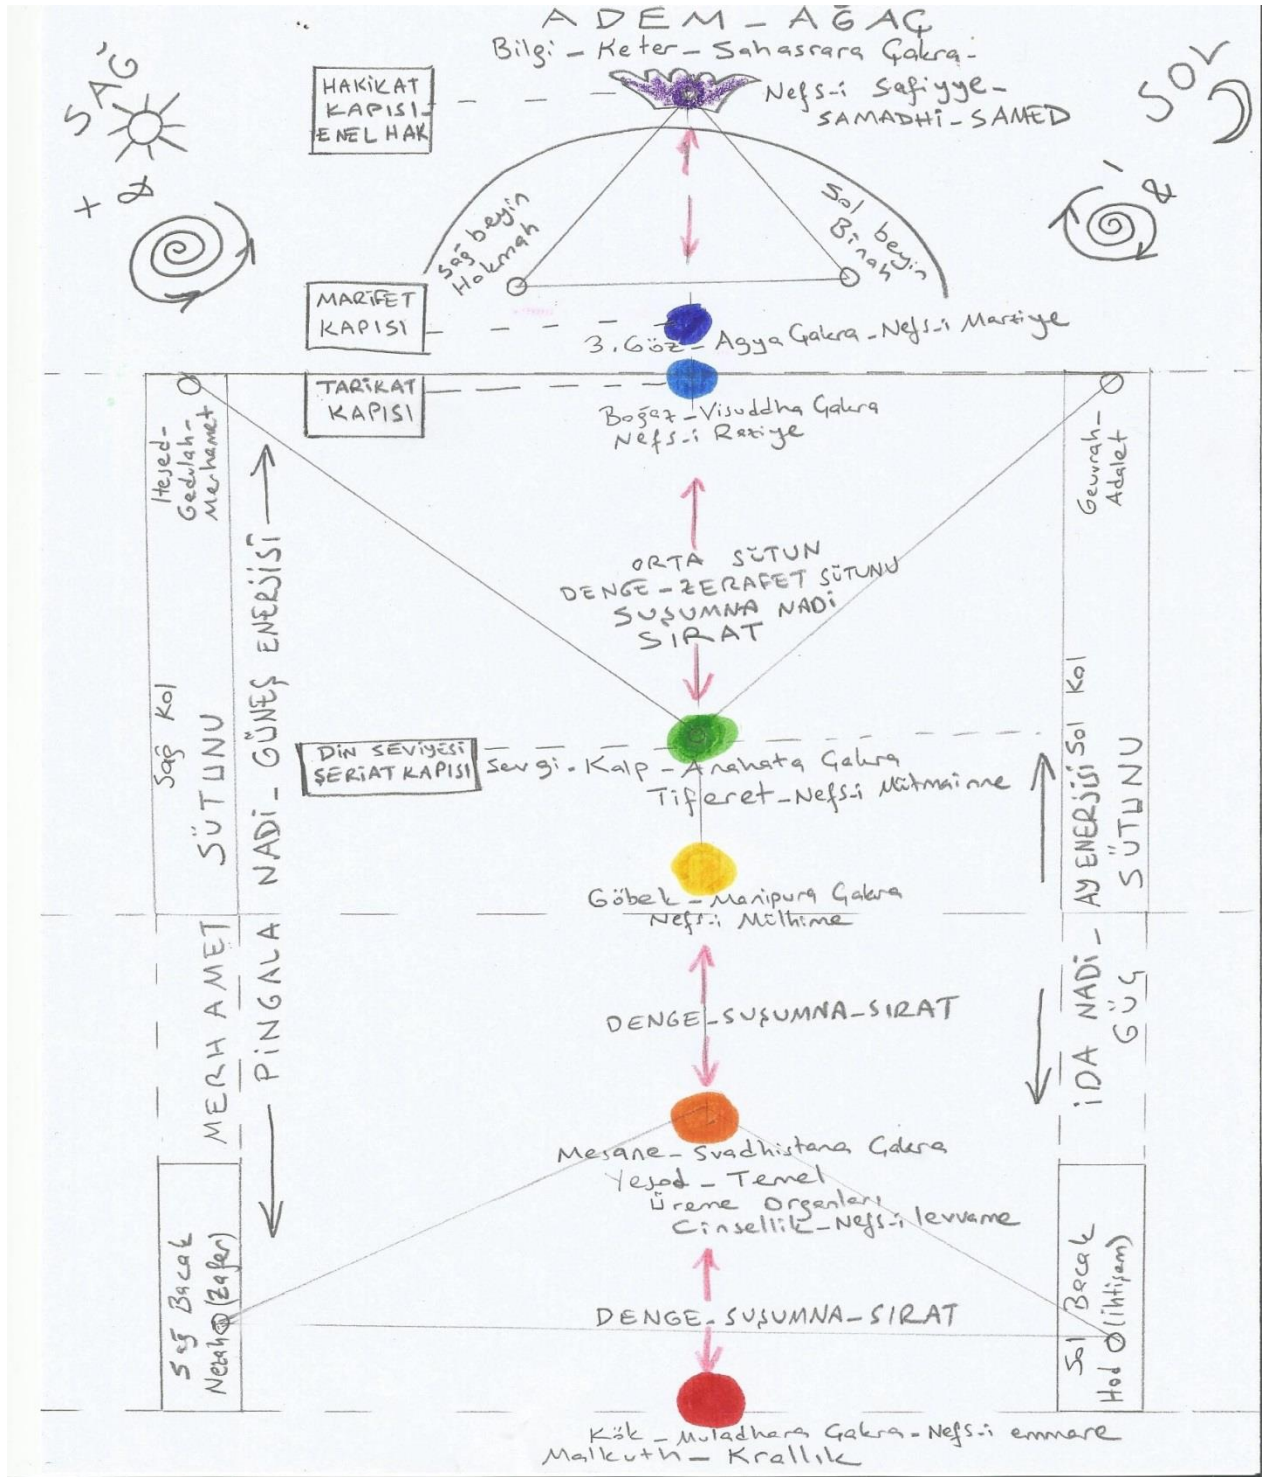 ADEM – AĞAÇ
Bilgi – Keter – Sahasrara Çakra –
Nefs-i Safiyye –
SAMADHİ – SAMED
SAĞ
SOL
+
-
&
HAKİKAT
KAPISI –
ENEL HAK
Sağ beyin
Hokmah
Sol beyin
Binah
MARİFET
KAPISI
3. Göz – Agya Çakra – Nefs-i Marziye
TARİKAT
KAPISI
Boğaz – Visuddha Çakra
Nefs-i Raziye
Hesed –
Gedulah –
Merhamet
Gevurah –
Adalet
ORTA SÜTUN
DENGE – ZERAFET SÜTUNU
SUŞUMNA NADİ
SIRAT
DİN SEVİYESİ
ŞERİAT KAPISI
Sevgi – Kalp – Anahata Çakra
Tiferet – Nefs-i Mütmainne
Sağ Kol
MERHAMET SÜTUNU
PİNGALA NADİ – GÜNEŞ ENERJİSİ
Sol Kol
İDA NADİ – AY ENERJİSİ
GÜÇ SÜTUNU
Göbek – Manipura Çakra
Nefs-i Mülhime
DENGE – SUŞUMNA – SIRAT
Mesane – Svadhistana Çakra
Yesod – Temel
Üreme Organları
Cinsellik – Nefs-i levvame
Sağ Bacak
Nezah (Zafer)
Sol Bacak
Hod (ihtişam)
DENGE – SUŞUMNA – SIRAT
Kök – Muladhara Çakra – Nefs-i emmare
Malkuth – Krallık